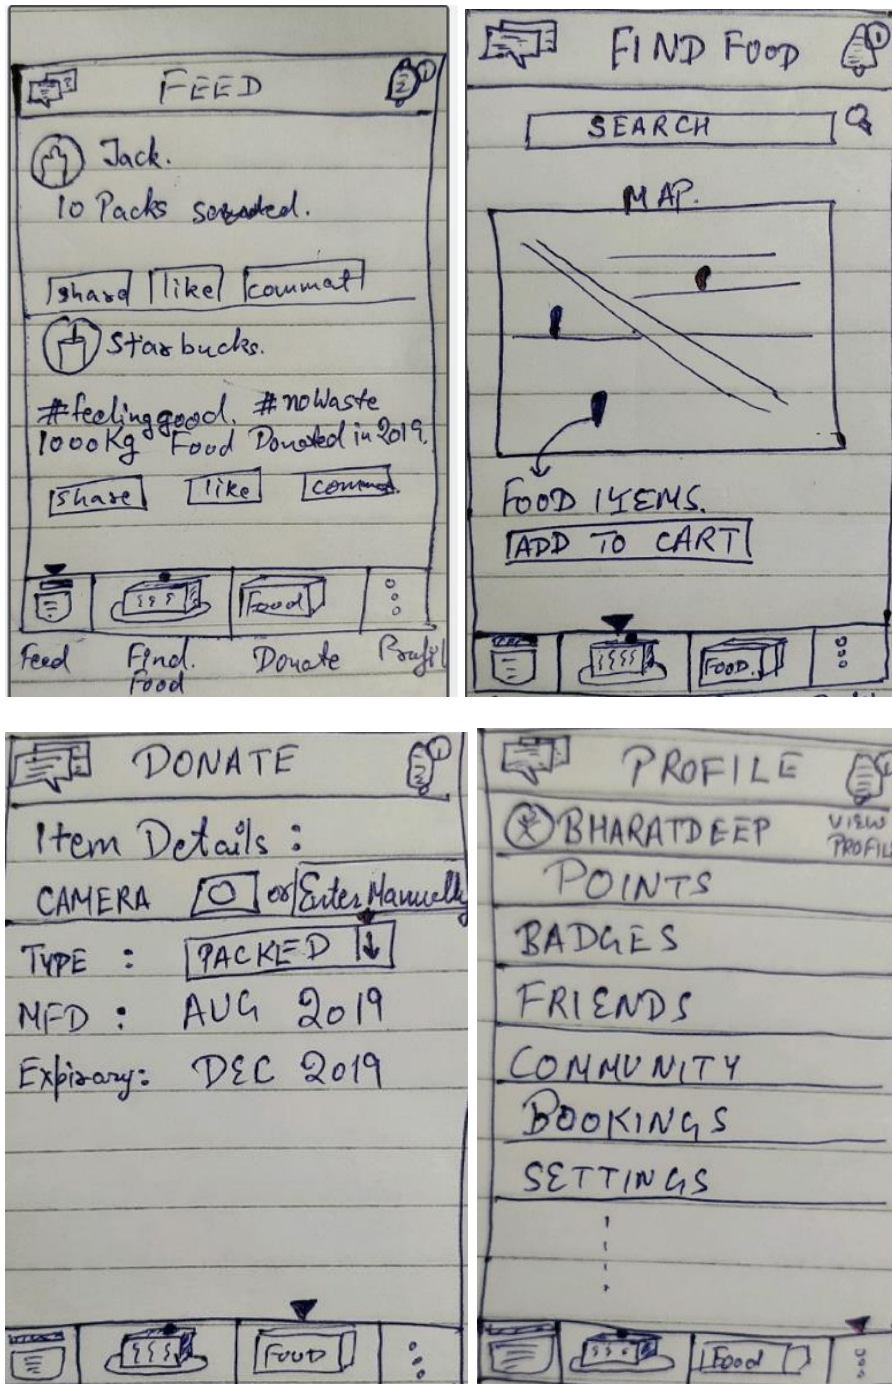 FEED
Jack.
10 Packs
share like commat
Starbucks.
#feelinggood. #noWaste
1000Kg Food Donated in 2019.
share like
Food
Feed Find. Donate
Food
FIND FOOD
SEARCH
MAP.
FOOD ITEMS.
ADD TO CART
FOOD.
DONATE
Item Details :
CAMERA or Enter Manually
TYPE : PACKED
MFD : AUG 2019
Expirary: DEC 2019
FOOD
PROFILE
BHARATDEEP VIEW
PROFIL
POINTS
BADGES
FRIENDS
COMMUNITY
BOOKINGS
SETTINGS
Food